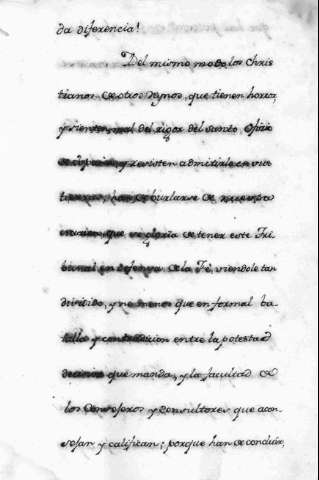 da diferencia!
Del mismo modo los Chris
tianos de otros Reynos, que tienen horror,
y sienten mal del rigor del Santo Oficio
de España, y resisten admitirle en sus
han de burlarse de nuestra
que se gloria de tener este Tri
bunal en defensa de la Fe, viendole tan
dividido, y no menos que en formal ba
talla y contradicion entre la potestad
que manda, y la facultad de
los Censores y Consultores que acon
sejan y califican; porque han de concluir,